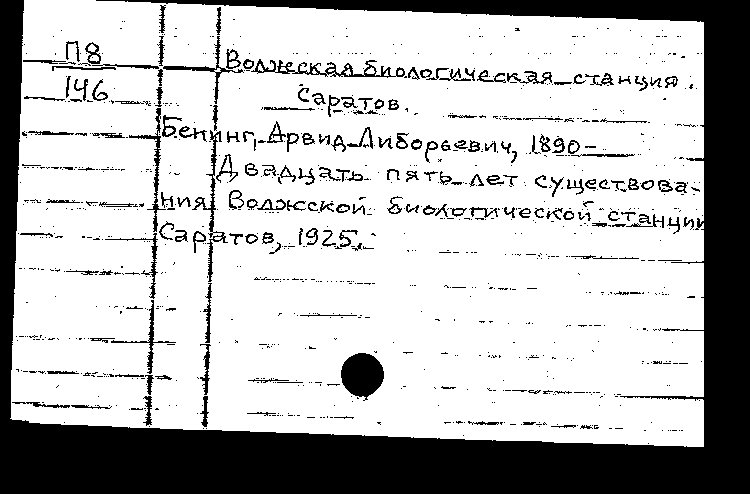 П8
146
Волжская биологическая станция.
Саратов.
Бенинг, Арвид Либорьевич, 1890-
Двадцать пять лет существова-
ния Волжской биологической станции
Саратов, 1925.